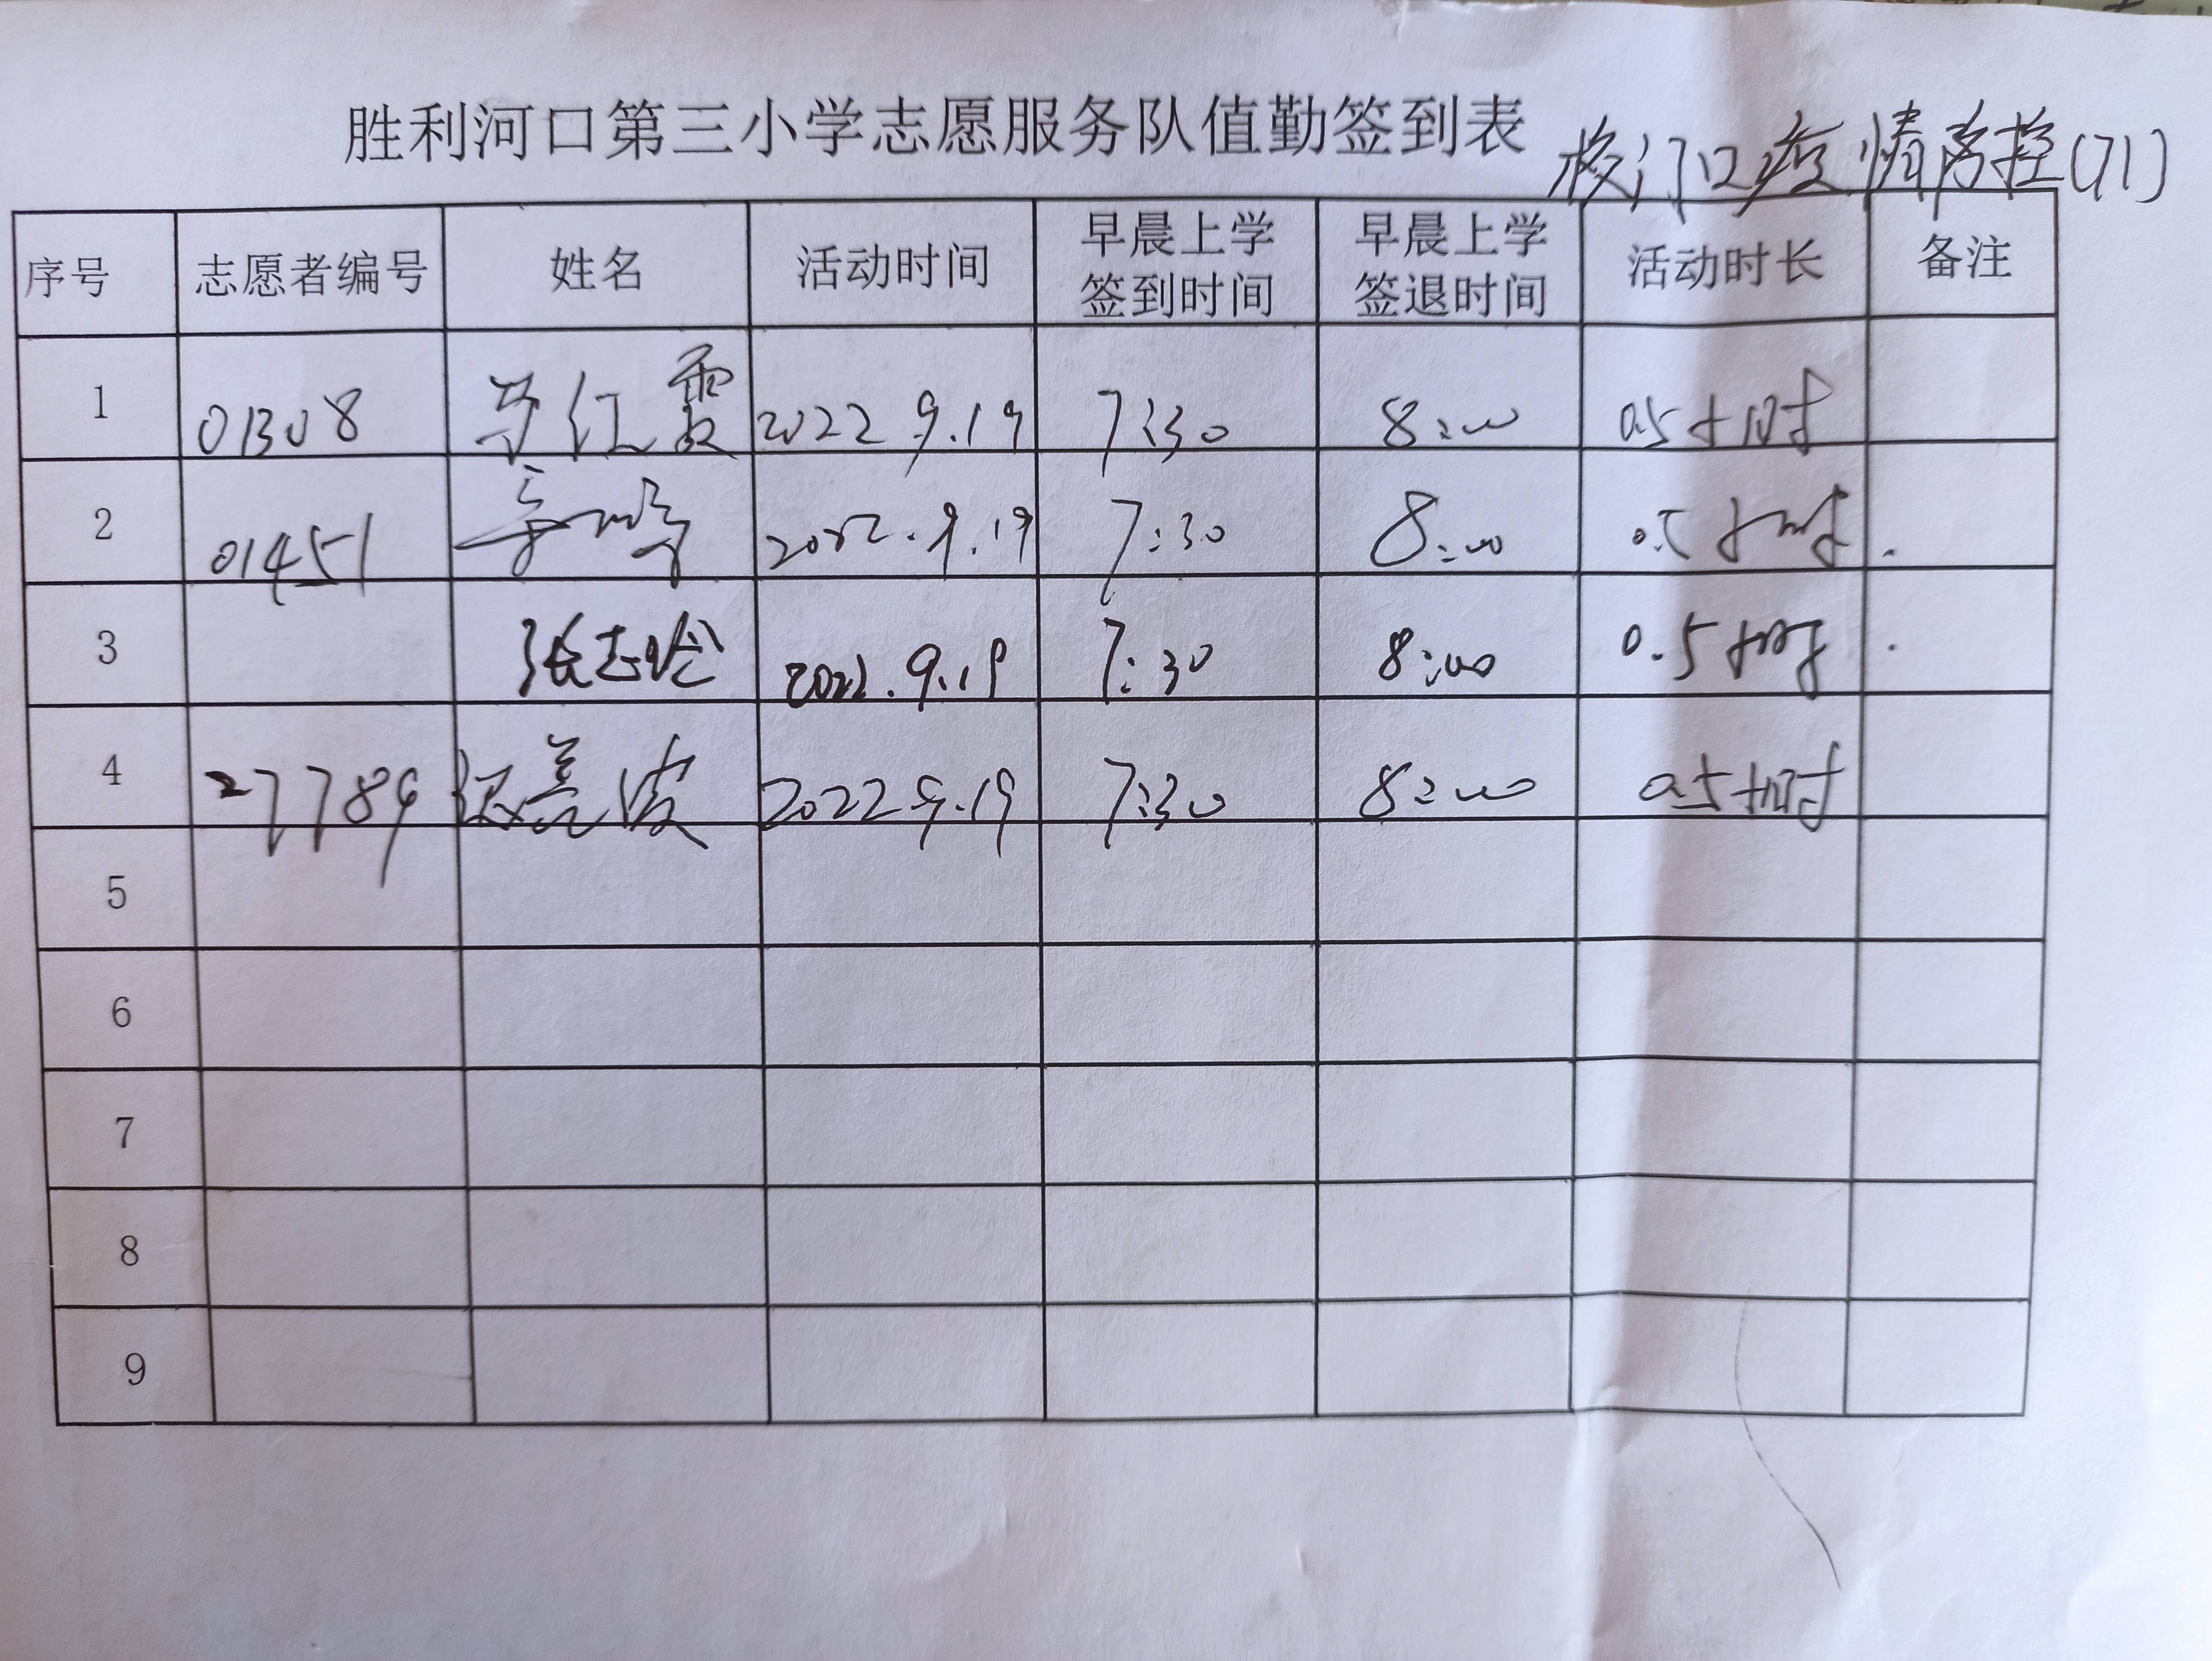 胜利河口第三小学志愿服务队值勤签到表 校门口疫情防控(71)
序号 志愿者编号 姓名 活动时间 早晨上学签到时间 早晨上学签退时间 活动时长 备注
1 01308 马红霞 2022 9.19 7:30 8:00 0.5小时
2 01451 2022.9.19 7:30 8:00 0.5小时
3 张志 2022.9.19 7:30 8:00 0.5小时
4 27789 张亮波 2022 9.19 7:30 8:00 0.5小时
5
6
7
8
9